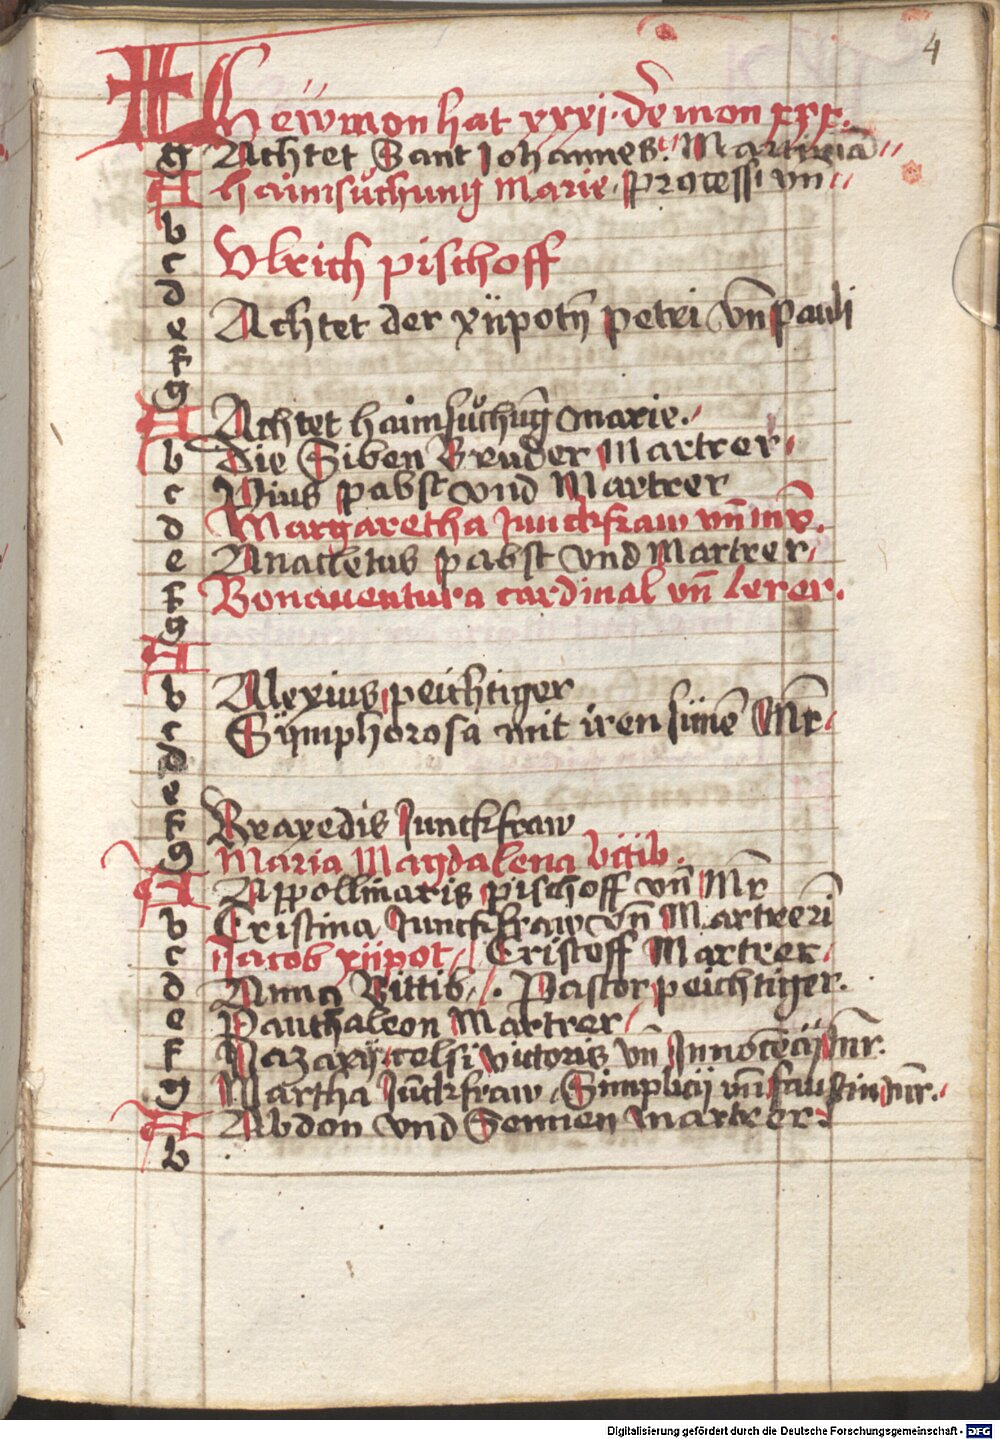 4
Hewmon hat xxxi. der mon xxx.
g Achtet Sant Johannes. Martiniā
A haimsuchung Marie. Processi vn
b
c Vlrich pischoff
d
e Achtet der xijpotn̄ petri vn̄ Pauli
f
g
A Achtet haimsuchūg marie.
b Die Siben Bruder Martrer
c Pius pabst vnd Martrer
d Margaretha Junckfraw vn̄
e Anacletus pabst vnd Martrer
f Bonauentura cardinal vn̄ lerer.
g
A
b Alexius peichtiger
c Symphorosa mit iren sünē Mr̄
d
e
f Braxedis Junckfraw
g Maria Magdalena Vitib.
A Appollinaris pischoff vn̄ Mr̄
b Cristina Junckfraw vn̄ Martreri
c Jacob xijpot / Cristoff Martrer.
d Anna Vittib. Pastor peichtiger.
e Panthaleon Martrer
f Nazarij celsi victoris vn̄ Innocēcij Mr̄.
g Martha Jūckfraw Simplicij vn̄ faustin mr̄.
A Abdon vnd Sennen martrer.
b
Digitalisierung gefördert durch die Deutsche Forschungsgemeinschaft - DFG